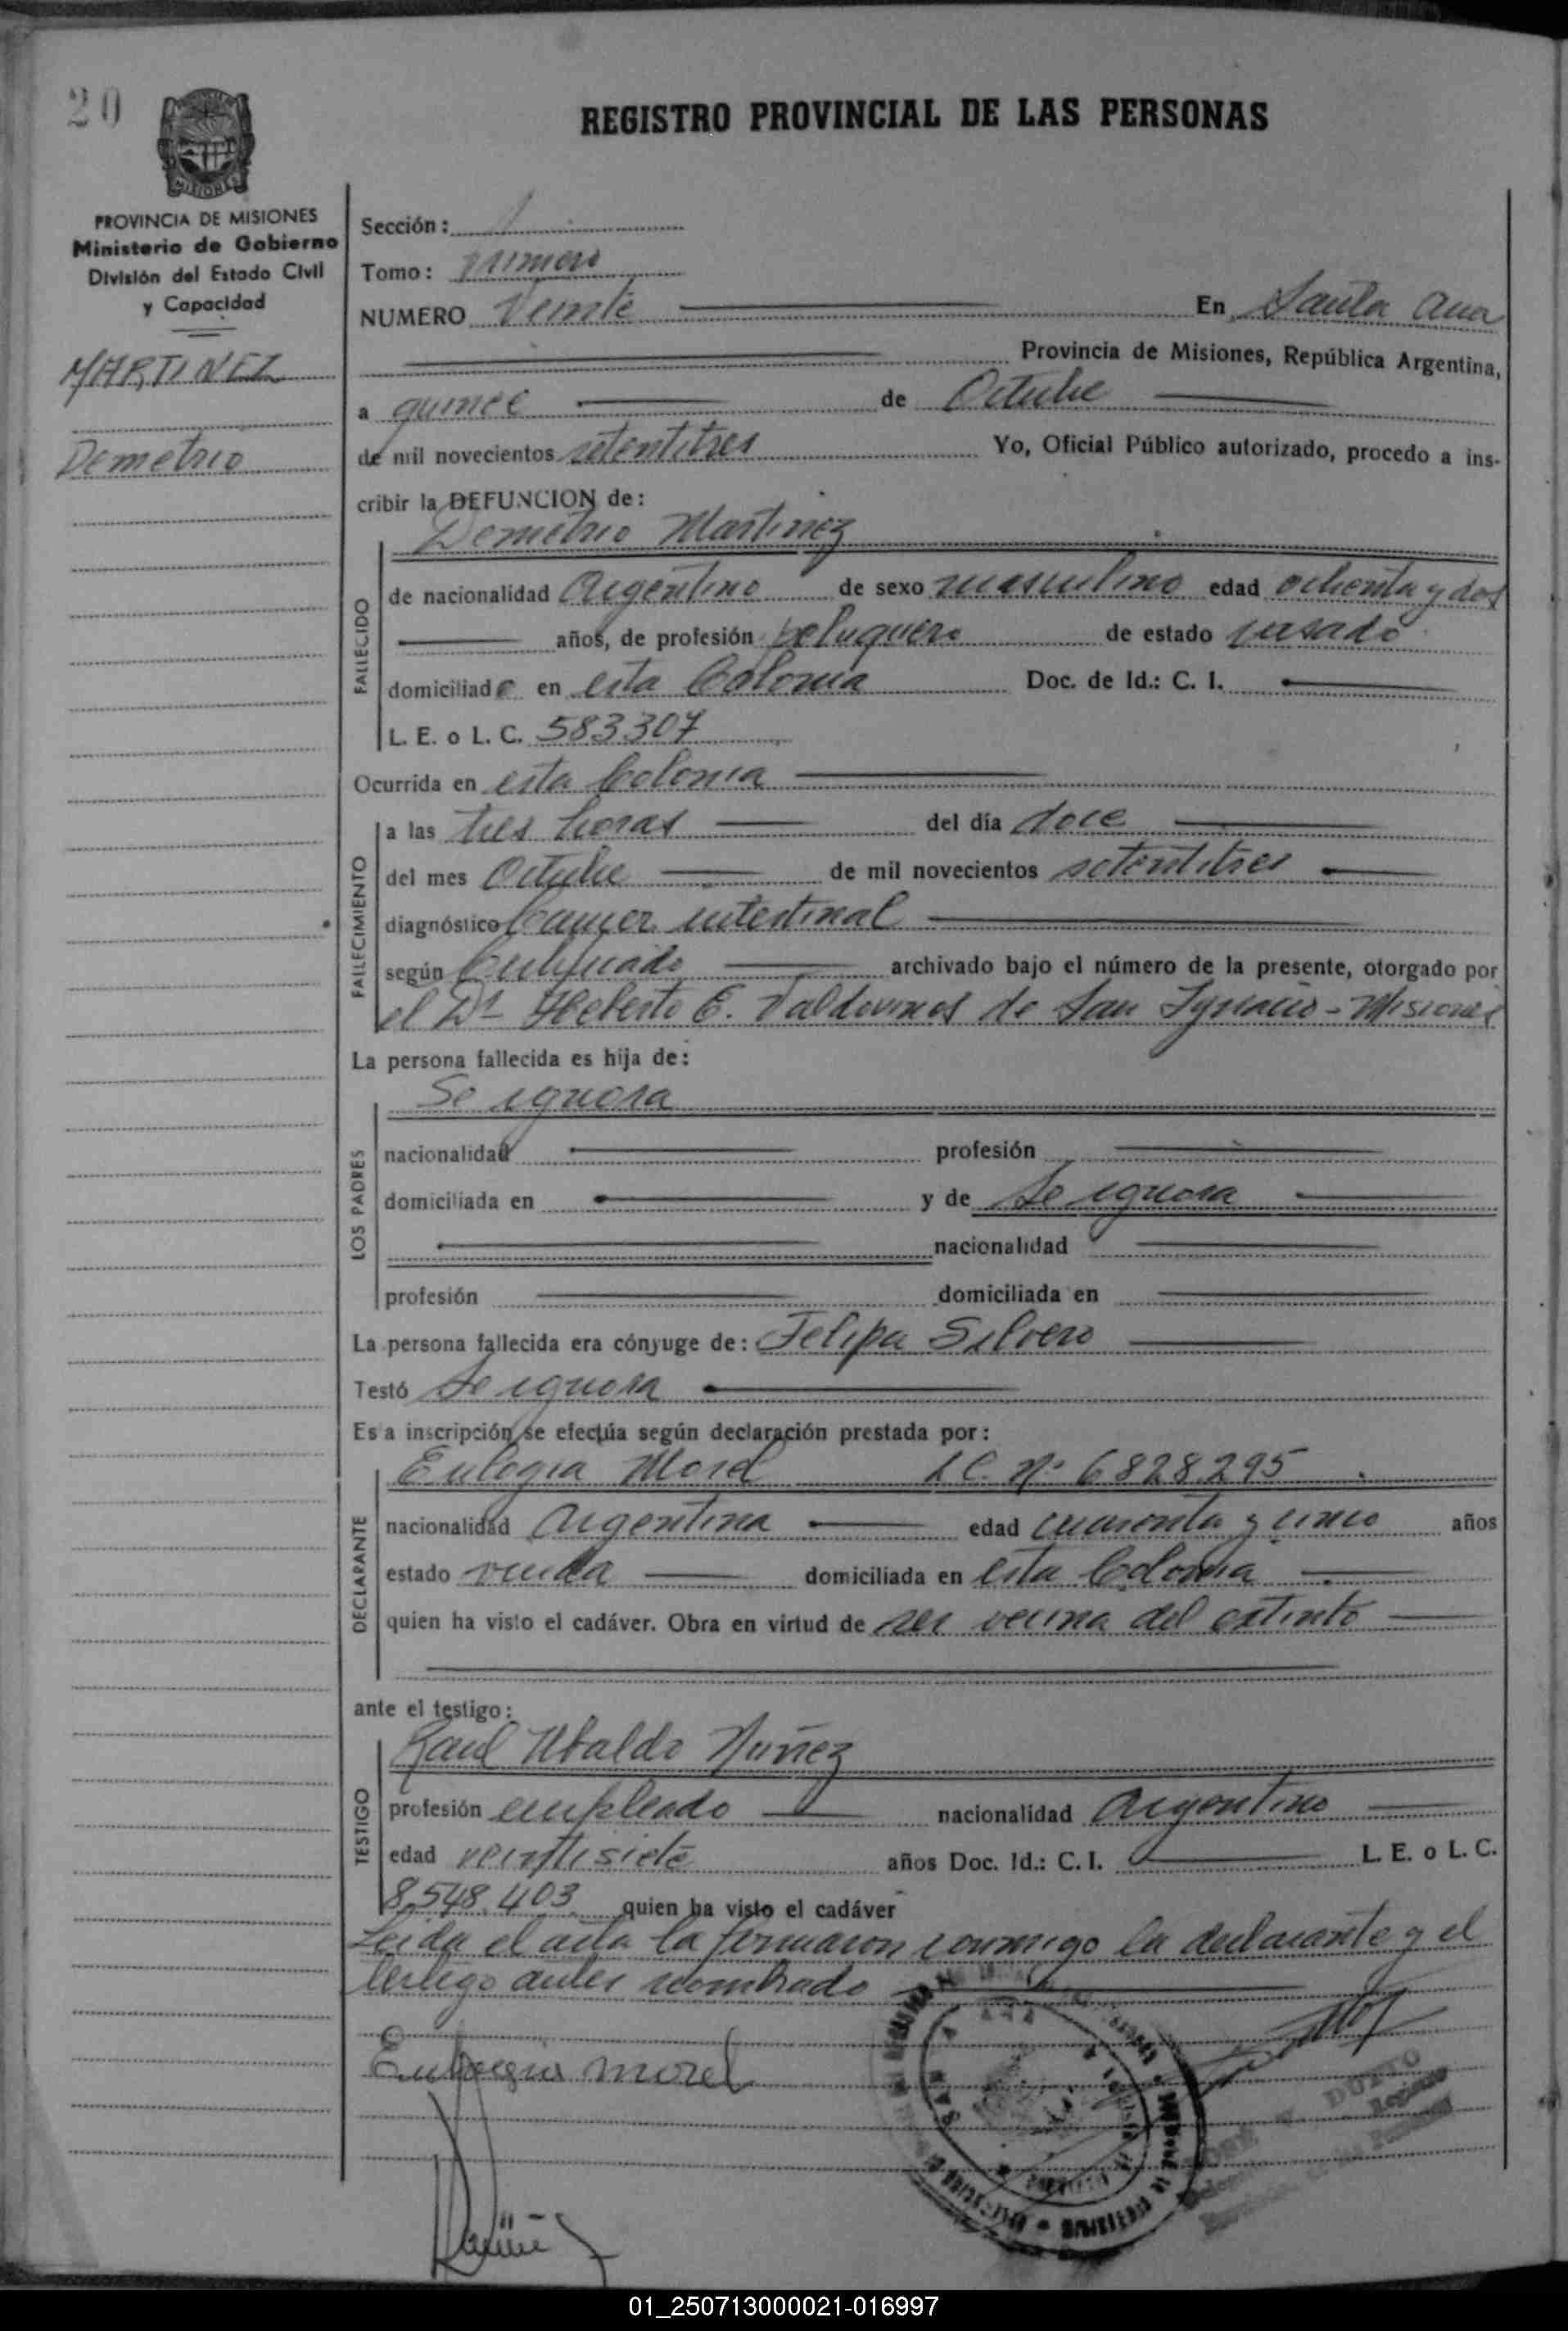 20
REGISTRO PROVINCIAL DE LAS PERSONAS
MISIONES
PROVINCIA DE MISIONES
Ministerio de Gobierno
División del Estado Civil
y Capacidad
MARTINEZ
Demetrio
Sección:
Tomo: primero
NUMERO Veinte En Santa Ana
Provincia de Misiones, República Argentina,
a quince de Octubre
de mil novecientos setentitres Yo, Oficial Público autorizado, procedo a ins-
cribir la DEFUNCION de:
Demetrio Martinez
FALLECIDO
de nacionalidad Argentino de sexo masculino edad ochenta y dos
años, de profesión peluquero de estado casado
domiciliado en esta Colonia Doc. de Id.: C. I.
L. E. o L. C. 583307
Ocurrida en esta Colonia
FALLECIMIENTO
a las tres horas del día doce
del mes Octubre de mil novecientos setentitres
diagnóstico Cancer intestinal
según Certificado archivado bajo el número de la presente, otorgado por
el Dr Heberto E. Valdovinos de San Ignacio - Misiones
La persona fallecida es hija de:
Se ignora
LOS PADRES
nacionalidad profesión
domiciliada en y de Se ignora
nacionalidad
profesión domiciliada en
La persona fallecida era cónyuge de: Felipa Silvero
Testó Se ignora
Es a inscripción se efectúa según declaración prestada por:
Eulogia Morel L C. Nº 6828295
DECLARANTE
nacionalidad Argentina edad cuarenta y cinco años
estado viuda domiciliada en esta Colonia
quien ha visto el cadáver. Obra en virtud de ser vecina del extinto
ante el testigo:
Raul Ubaldo Nuñez
TESTIGO
profesión empleado nacionalidad Argentino
edad veintisiete años Doc. Id.: C. I. L. E. o L. C.
8.548.403 quien ha visto el cadáver
Leida el acta la firmaron conmigo la declarante y el
testigo antes nombrado
Eulogia morel
DUTTO
01_250713000021-016997